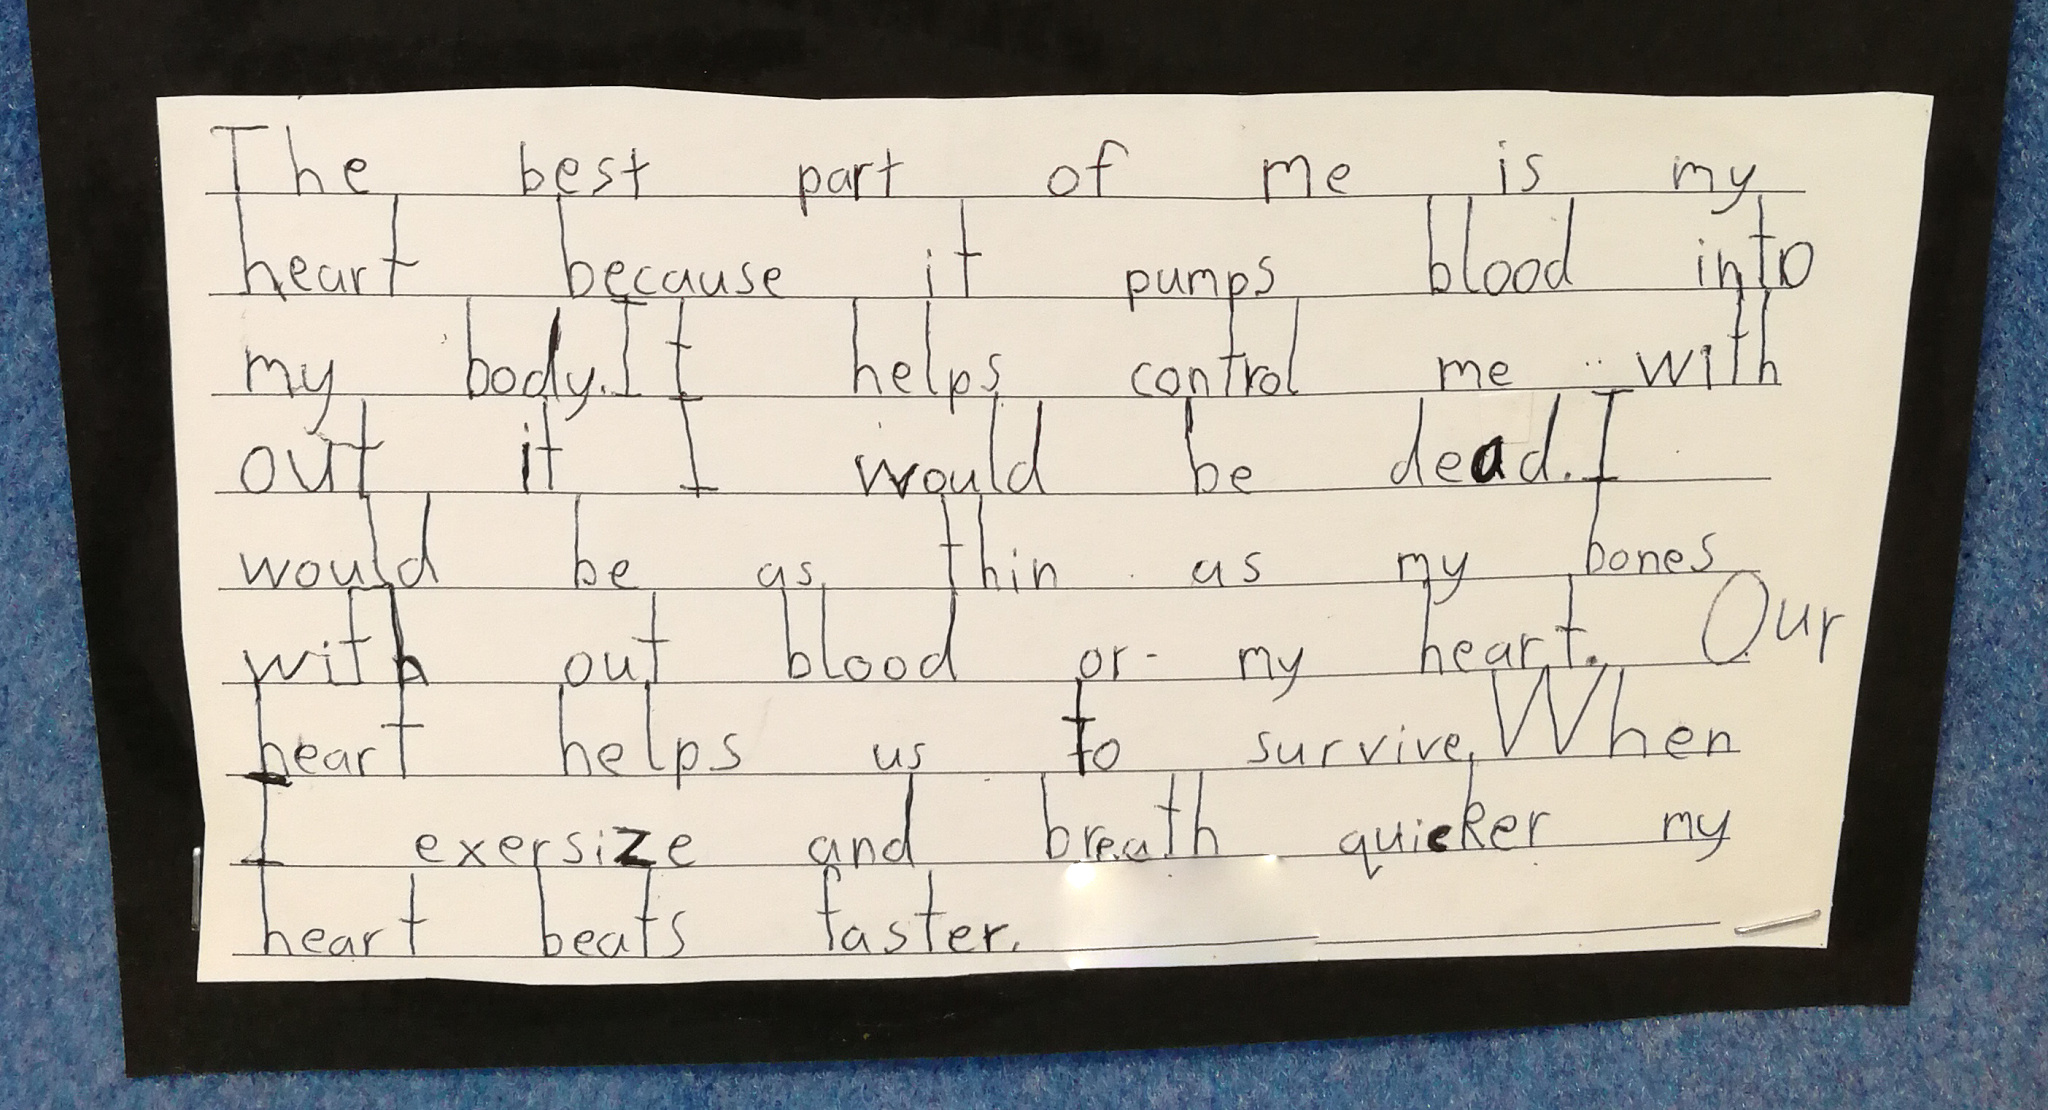 The best part of me is my
heart because it pumps blood into
my body. It helps control me with
out it I would be dead. I
would be as thin as my bones
with out blood or my heart. Our
heart helps us to survive. When
I exersize and breath quicker my
heart beats faster.